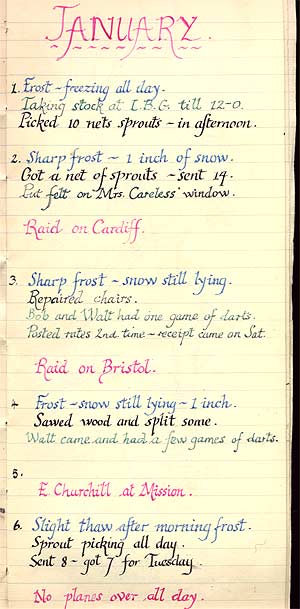 JANUARY.
1. Frost ~ freezing all day.
Taking stock at I.B.G. till 12-0.
Picked 10 nets sprouts ~ in afternoon.
2. Sharp frost ~ 1 inch of snow.
Got a net of sprouts ~ sent 14.
Put felt on Mrs. Careless' window.
Raid on Cardiff.
3. Sharp frost ~ snow still lying.
Repaired chairs.
Bob and Walt had one game of darts.
Posted rates 2nd. time ~ receipt came on Sat.
Raid on Bristol.
4 Frost ~ snow still lying ~ 1 inch.
Sawed wood and split some.
Walt came and had a few games of darts.
5.
E. Churchill at Mission.
6. Slight thaw after morning frost.
Sprout picking all day.
Sent 8 ~ got 7 for Tuesday.
No planes over all day.